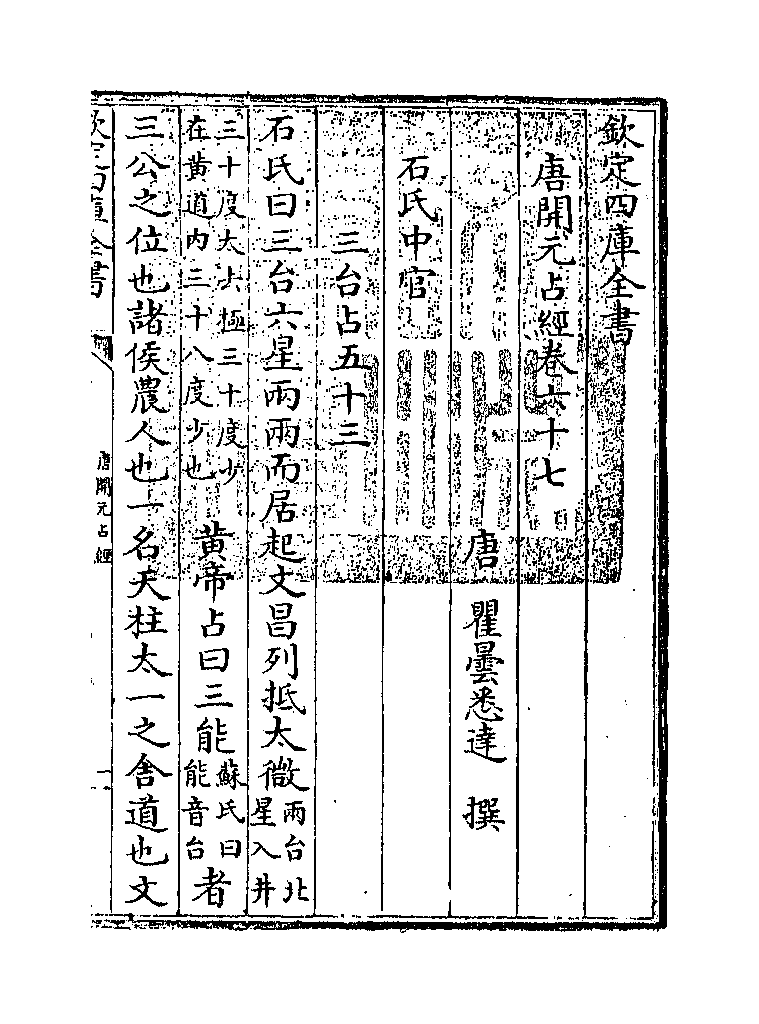 欽定四庫全書
唐開元占經卷六十七
唐 瞿曇悉達 撰
石氏中官
三台占五十三
石氏曰三台六星兩兩而居起文昌列抵太微兩台北星入井
三十度太去極三十度少在黄道内三十八度少也 黄帝占曰三能蘇氏曰能音台者
三公之位也諸侯農人也一名天柱太一之舍道也文
欽定四庫全書
唐開元占經
一